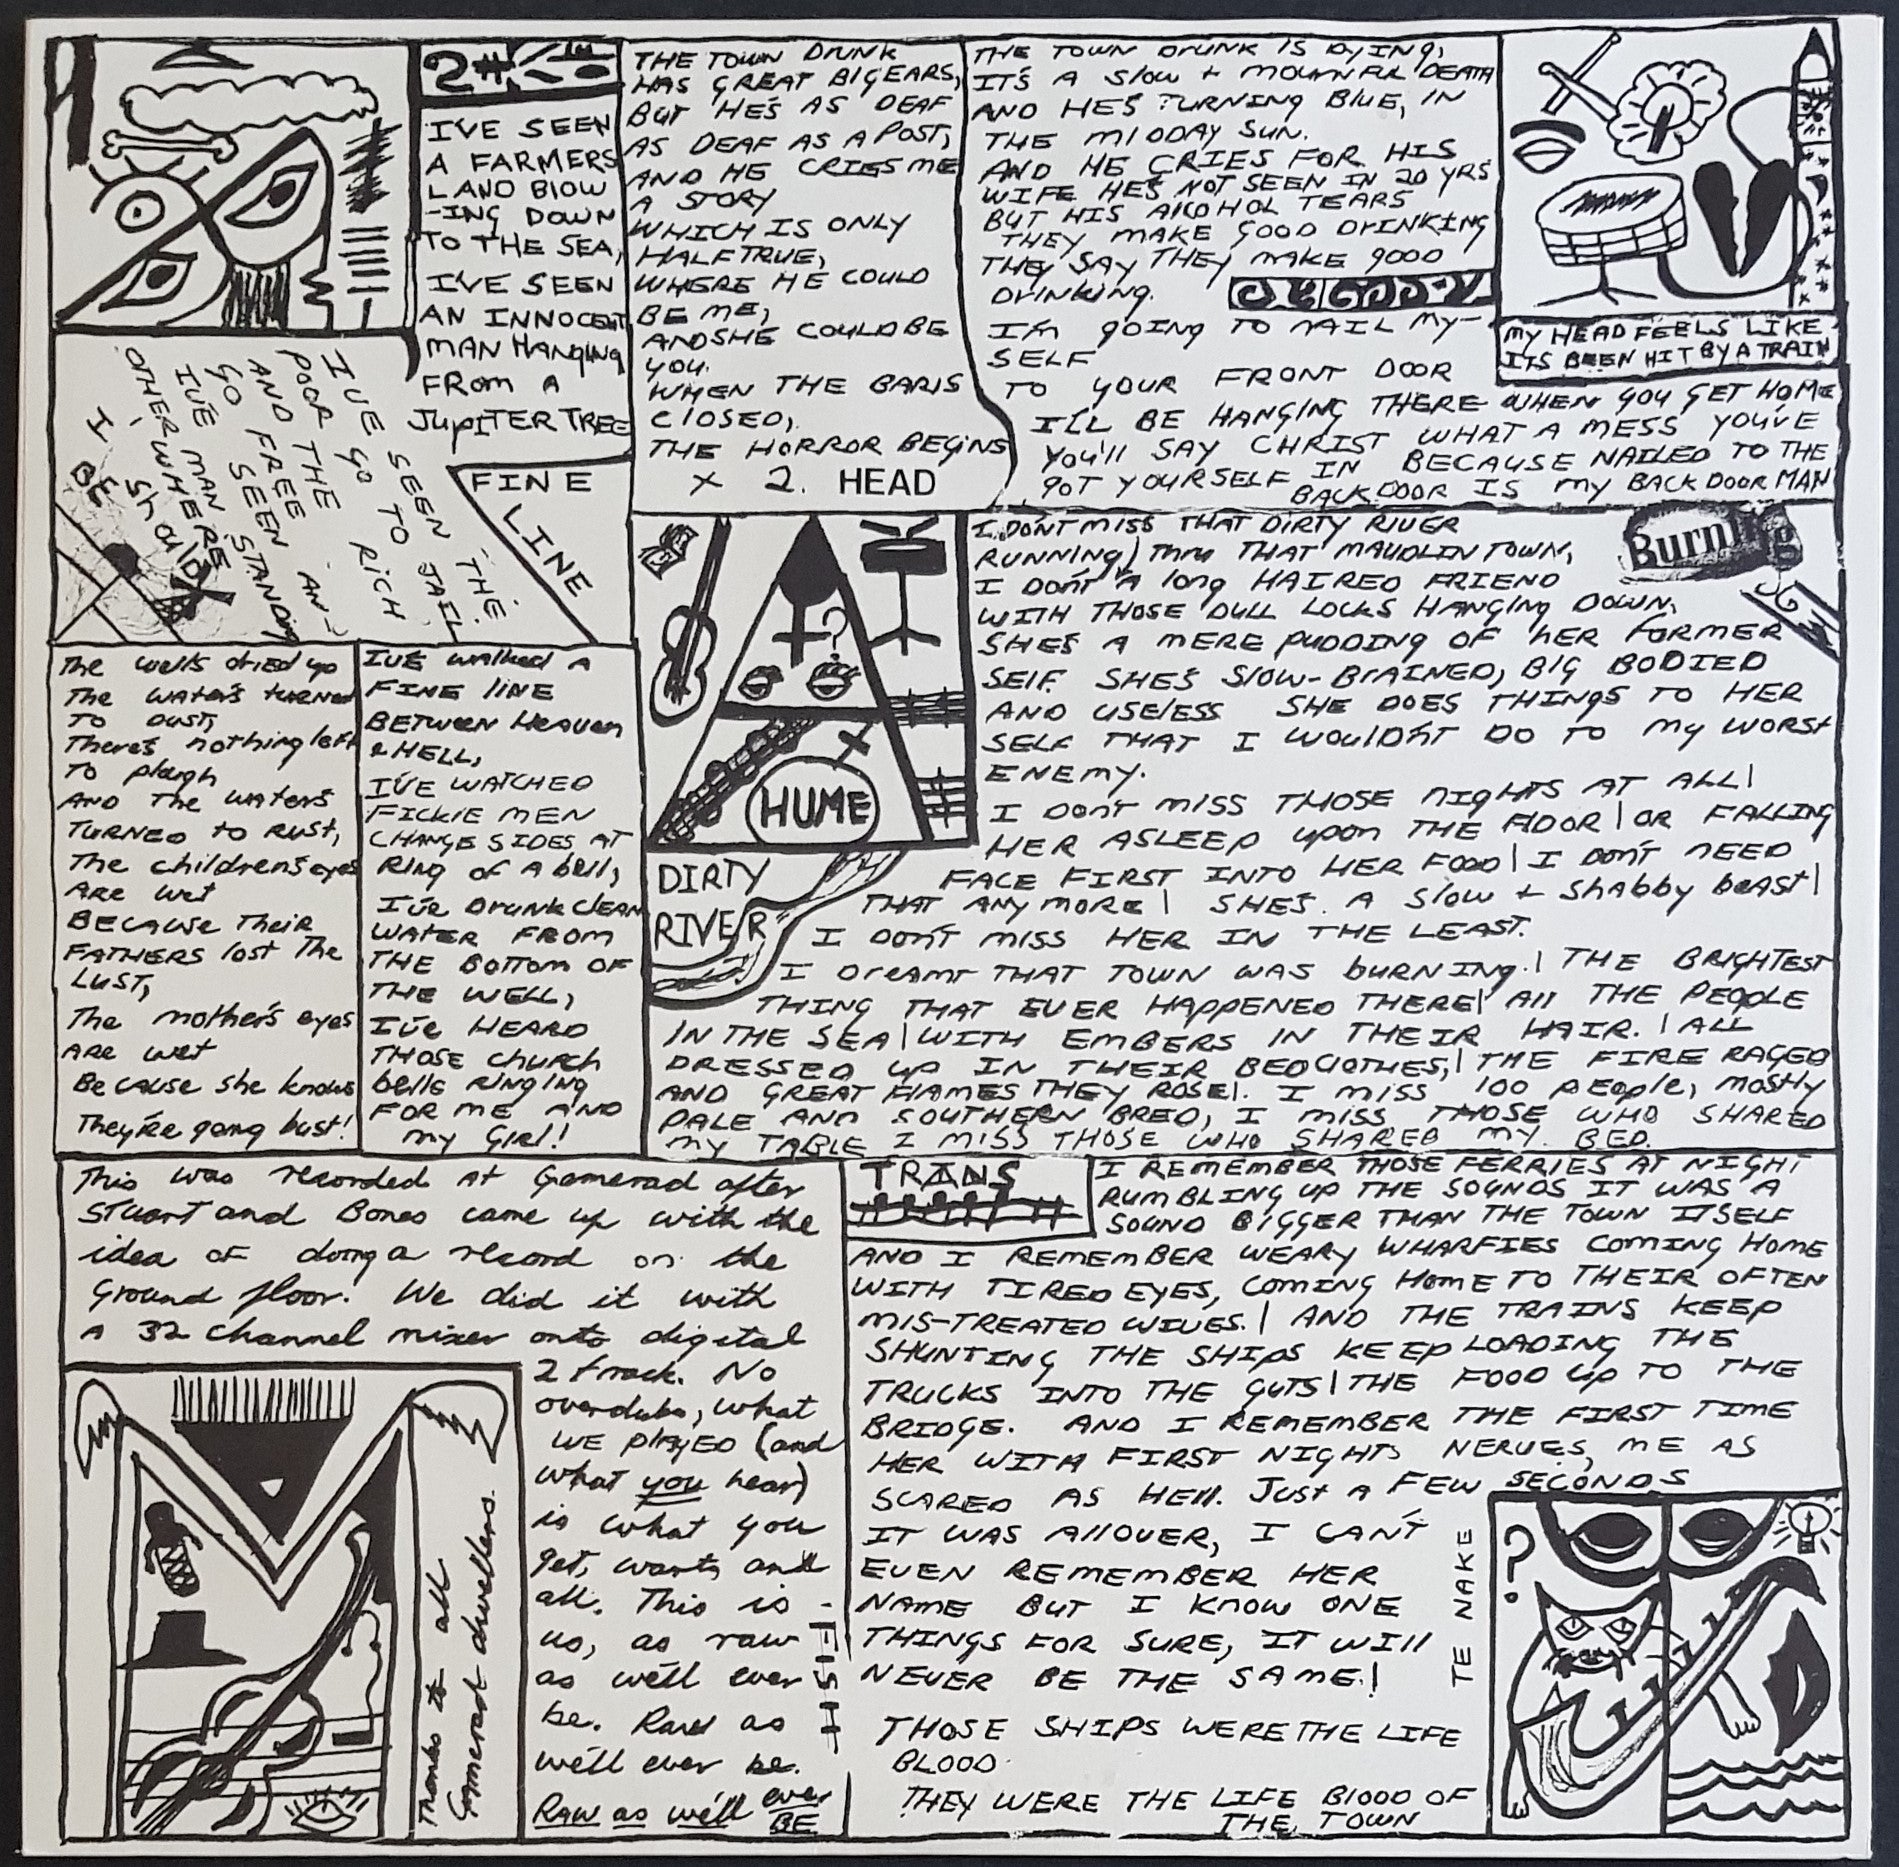 I'VE SEEN
A FARMERS
LAND BLOW
-ING DOWN
TO THE SEA,
I'VE SEEN
AN INNOCENT
MAN HANGING
FROM A
JUPITER TREE
I'VE SEEN THE
POOR GO TO JAIL
AND THE RICH
GO FREE AN-
I'VE SEEN
MAN STANDING
OTHERWHERE
I SHOULD
BE
FINE
LINE
The wells dried up
The water's turned
TO DUST,
There's nothing left
To plough
AND The waters
TURNED to RUST,
The children's eyes
ARE wet
BECAUSE Their
FATHERS lost The
LUST,
The mother's eyes
ARE wet
Because she knows
They're going bust!
I'VE walked A
FINE line
BETWEEN HEAVEN
& HELL,
I'VE WATCHED
FICKLE MEN
CHANGE SIDES AT
Ring OF A bell,
I've DRUNK CLEAN
WATER FROM
THE BOTTOM OF
THE WELL,
I've HEARD
THOSE church
bells RINGING
FOR ME AND
my GIRL!
THE TOWN DRUNK
HAS GREAT BIG EARS,
BUT HE'S AS DEAF
AS DEAF AS A POST,
AND HE CRIES ME
A STORY
WHICH IS ONLY
HALF TRUE,
WHERE HE COULD
BE ME,
AND SHE COULD BE
YOU.
WHEN THE BAR IS
CLOSED,
THE HORROR BEGINS
x 2. HEAD
THE TOWN DRUNK IS DYING,
IT'S A SLOW + MOURNFUL DEATH
AND HE'S TURNING BLUE, IN
THE MIDDAY SUN.
AND HE CRIES FOR HIS
WIFE HE'S NOT SEEN IN 20 YRS
BUT HIS ALCOHOL TEARS
THEY MAKE GOOD DRINKING
THEY SAY THEY MAKE GOOD
DRINKING.
I'M GOING TO NAIL MY-
SELF
TO YOUR FRONT DOOR
I'LL BE HANGING THERE WHEN YOU GET HOME
YOU'LL SAY CHRIST WHAT A MESS YOU'VE
GOT YOURSELF IN BECAUSE NAILED TO THE
BACK DOOR IS MY BACK DOOR MAN
MY HEAD FEELS LIKE
ITS BEEN HIT BY A TRAIN
HUME
DIRTY
RIVER
Burning
I DON'T MISS THAT DIRTY RIVER
RUNNING THRU THAT MAUDLIN TOWN,
I DON'T A LONG HAIRED FRIEND
WITH THOSE DULL LOCKS HANGING DOWN.
SHE'S A MERE PUDDING OF HER FORMER
SELF. SHE'S SLOW-BRAINED, BIG BODIED
AND USELESS SHE DOES THINGS TO HER
SELF THAT I WOULDN'T DO TO MY WORST
ENEMY.
I DON'T MISS THOSE NIGHTS AT ALL|
HER ASLEEP UPON THE FLOOR| OR FALLING
FACE FIRST INTO HER FOOD| I DON'T NEED
THAT ANYMORE| SHE'S A SLOW + SHABBY BEAST|
I DON'T MISS HER IN THE LEAST.
I DREAMT THAT TOWN WAS BURNING.| THE BRIGHTEST
THING THAT EVER HAPPENED THERE| ALL THE PEOPLE
IN THE SEA| WITH EMBERS IN THEIR HAIR.| ALL
DRESSED UP IN THEIR BEDCLOTHES,| THE FIRE RAGED
AND GREAT FLAMES THEY ROSE|. I MISS 100 PEOPLE, MOSTLY
PALE AND SOUTHERN BRED, I MISS THOSE WHO SHARED
MY TABLE I MISS THOSE WHO SHARED MY BED.
This was recorded at Gamerad after
Stuart and Bones came up with the
idea of doing a record on the
Ground floor. We did it with
a 32 channel mixer onto digital
2 track. No
overdubs, what
WE PLAYED (and
what you hear)
is what you
get, warts and
all. This is -
us, as raw
as we'll ever
be. Raw as
we'll ever be.
RAW as we'll ever
BE
FISH
Thanks to all
Gamerad dwellers.
TRANS
I REMEMBER THOSE FERRIES AT NIGHT
RUMBLING UP THE SOUNDS IT WAS A
SOUND BIGGER THAN THE TOWN ITSELF
AND I REMEMBER WEARY WHARFIES COMING HOME
WITH TIRED EYES, COMING HOME TO THEIR OFTEN
MIS-TREATED WIVES.| AND THE TRAINS KEEP
SHUNTING THE SHIPS KEEP LOADING THE
TRUCKS INTO THE GUTS| THE FOOD UP TO THE
BRIDGE. AND I REMEMBER THE FIRST TIME
HER WITH FIRST NIGHTS NERVES, ME AS
SCARED AS HELL. JUST A FEW SECONDS
IT WAS ALL OVER, I CAN'T
EVEN REMEMBER HER
NAME BUT I KNOW ONE
THINGS FOR SURE, IT WILL
NEVER BE THE SAME.!
THOSE SHIPS WERE THE LIFE
BLOOD.
THEY WERE THE LIFE BLOOD OF
THE TOWN
TE NAKE